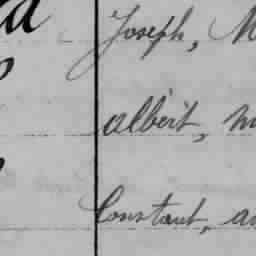 Joseph, M
albert, m
Constant, a